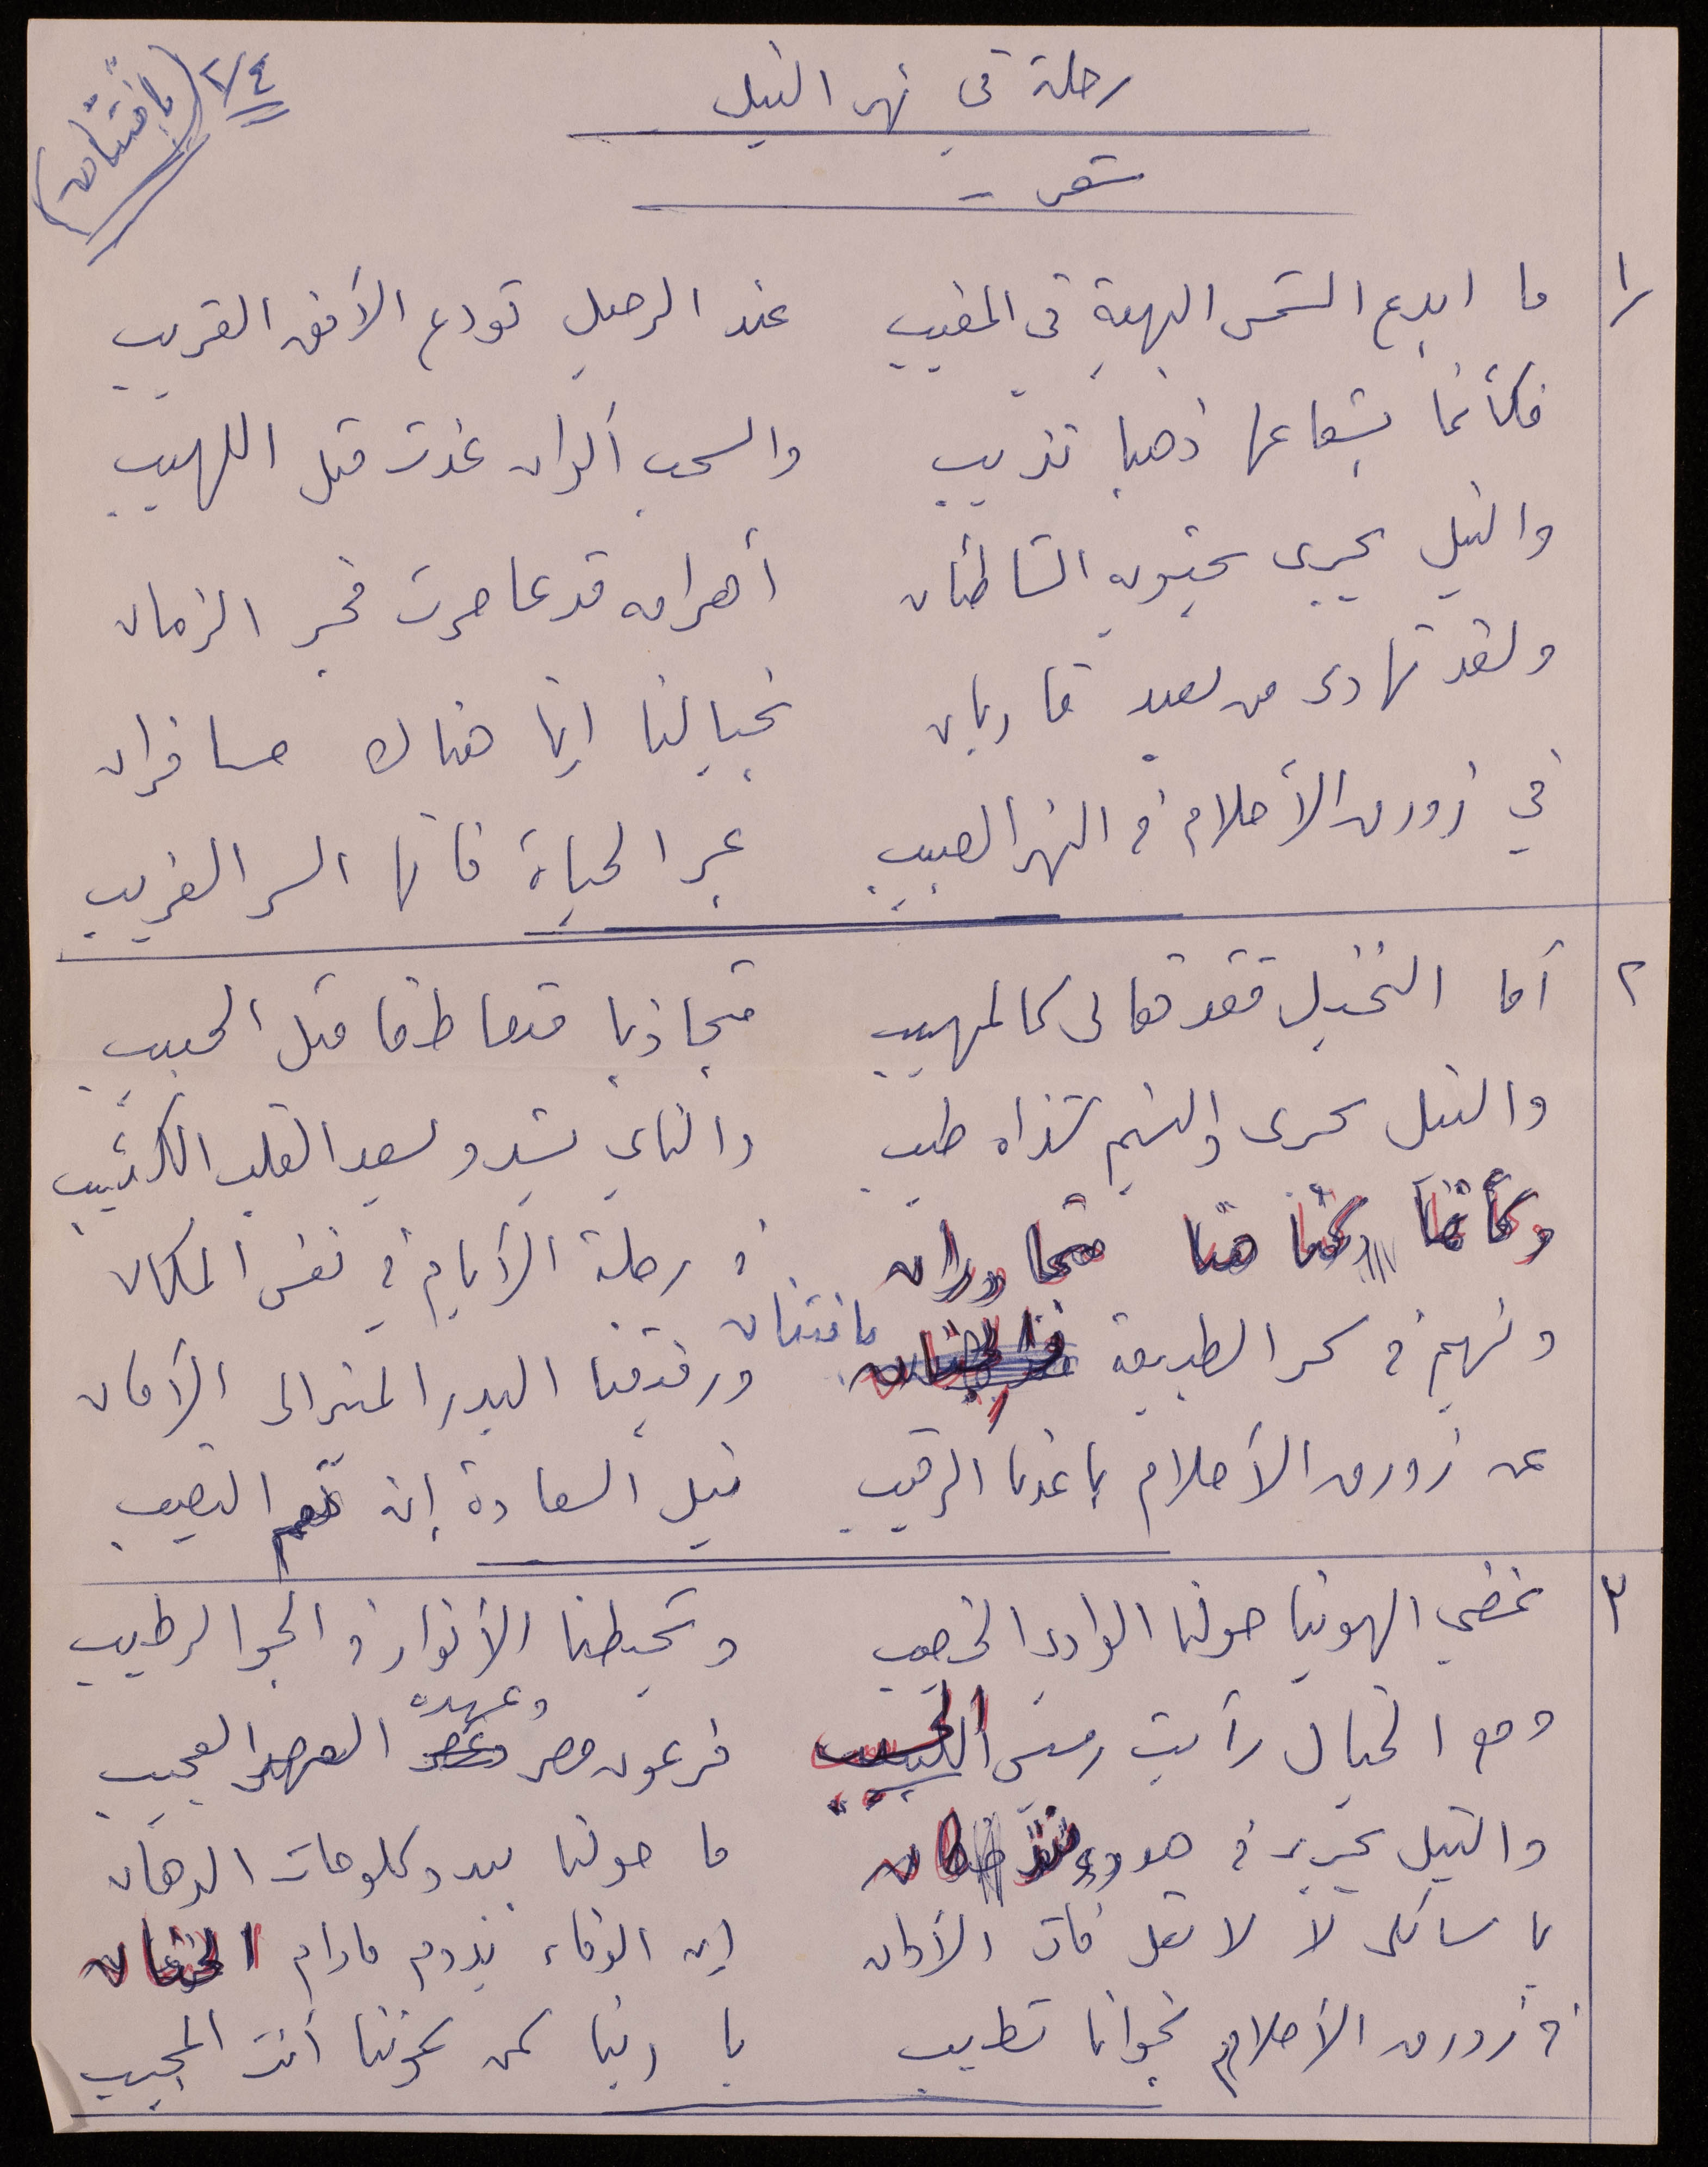 رحلة في نهر النيل
شعر -
٢/٤ (بافتتان)
١/ ما ابدع الشمس البهية في المغيب عند الرحيل تودع الأفق القريب
فكأنما بشعاعها ذهبا تذيب والسحب ألوان غدت مثل اللهيب
والنيل يجري يحتويه الشاطئان أهرامه قد عاصرت فجر الزمان
ولقد تهادى من بعيد قاربان بخيالنا انا هناك مسافران
في زورق الأحلام في النهر الحبيب عبر الحياة فانها السر الغريب
٢ أما النخيل فقد تعالى كالمهيب متجاذبا متعاطفا مثل الحبيب
والنيل يجرى والنسيم شذاه طيب والناي يشدو يسعد القلب الكئيب
وكأننا كنا هنا متجاوران في رحلة الأيام في نفس المكان
ونهيم في سحر الطبيعة بافتتان ورفيقنا البدر المنير الى الأمان
عن زورق الأحلام باعدنا الرقيب نيل السعادة إنه نعم النصيب
٣ نمضي الهوينا حولنا الوادي الخصيب وتحيطنا الأنوار في الجو الرطيب
ومع الخيال رأيت رمسيس فرعون مصر وعهده العجيب
والنيل يجري في هدوء ما حولنا يبدو كلوحات الدهان
يا سائلى لا لا تقل فات الأوان ان الوفاء يدوم مادام
في زورق الأحلام نجوانا تطيب يا ربنا كن عوننا أنت المجيب